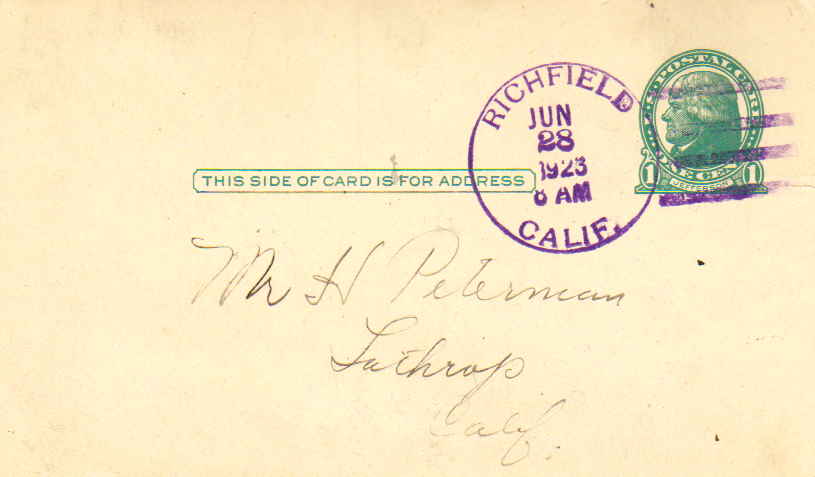 RICHFIELD
JUN
28
1923
8 AM
CALIF.
U.S. POSTAL CARD
1 ONE CENT 1
JEFFERSON
THIS SIDE OF CARD IS FOR ADDRESS
Mr H Peterman
Lathrop
Calif.